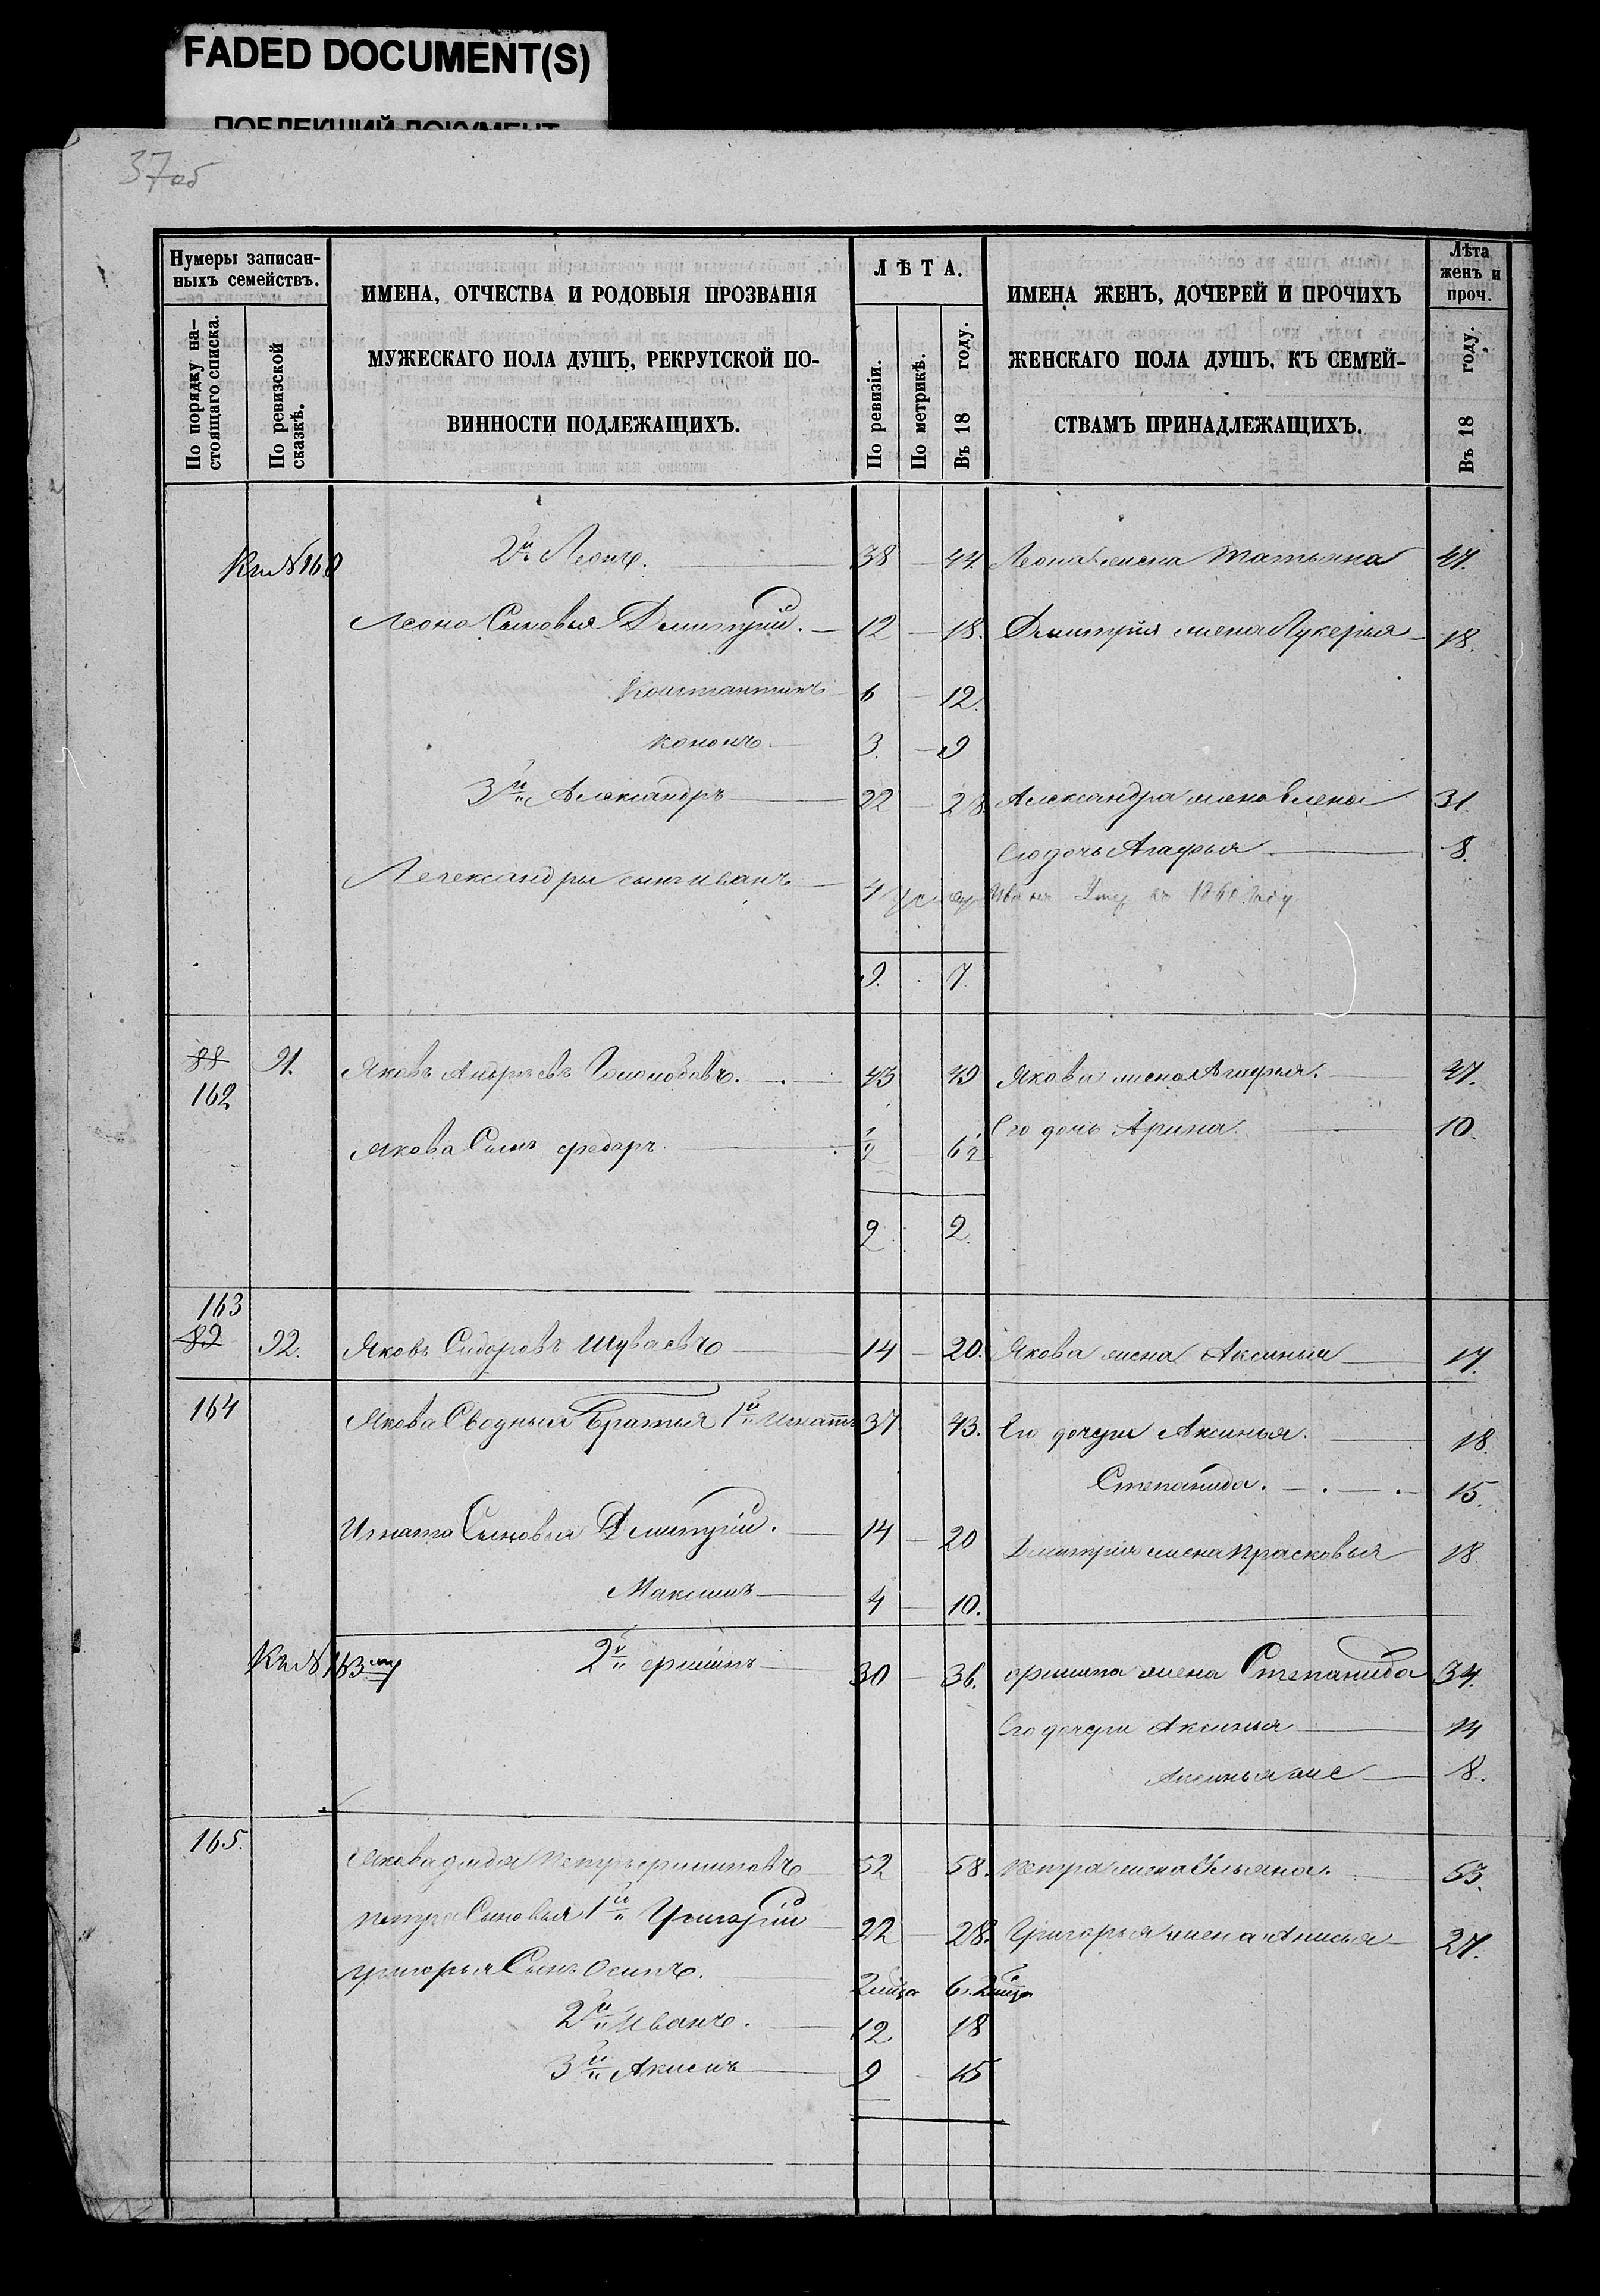 FADED DOCUMENT(S)
ПОБЛЕКШИЙ ДОКУМЕНТ
37об
Нумеры записан-
ныхъ семействъ.
По порядку на-
стоящаго списка.
По ревизской
сказкѣ.
ИМЕНА, ОТЧЕСТВА И РОДОВЫЯ ПРОЗВАНІЯ
МУЖЕСКАГО ПОЛА ДУШЪ, РЕКРУТСКОЙ ПО-
ВИННОСТИ ПОДЛЕЖАЩИХЪ.
ЛѢТА.
По ревизіи.
По метрикѣ.
Въ 18 году.
ИМЕНА ЖЕНЪ, ДОЧЕРЕЙ И ПРОЧИХЪ
ЖЕНСКАГО ПОЛА ДУШЪ, КЪ СЕМЕЙ-
СТВАМЪ ПРИНАДЛЕЖАЩИХЪ.
Лѣта
женъ и
проч.
Въ 18 году.
Къ № 160 2й Леонъ. 38 44. Леона жена Татьяна 47.
Леона Сыновья Дмитрій. 12 18. Дмитрія жена Лукерья 18.
Константинъ 6 12.
Кононъ 3. 9
3й Александръ 22 28. Александра жена Елена 31.
Его дочь Агафья 8.
Александры сынъ Иванъ 4 умер Иванъ Умер въ 1860 году
9. 7.
88 91. Яковъ Андреевъ 43 49 Якова жена Агафья. 47.
162
Якова Сынъ Федоръ 1/2 6 1/2 Его дочь Арина. 10.
2 2.
163
89 92. Яковъ Сидоровъ Шуваевъ 14 20. Якова жена Аксинья 17.
164 Якова Сводныя Братья 1й Игнатъ 37 43. Его дочери Аксинья. 18.
Степанида. 15.
Игната Сыновья Дмитрій. 14 20 Дмитрія жена Прасковья 18.
Максимъ 4 10.
Къ № 163му 2й Филипъ 30 36. Филипа жена Степанида 34.
Его дочери Аксинья 14
Аксинья же 8.
165. Якова дядя Петръ Филиповъ 52 58. Петра жена Ульяна. 53.
Петра Сыновья 1й Григорій 22 28. Григорья жена Анисья 27.
Григорья Сынъ Осипъ. 2 мѣся 6. 2 мѣся
2й Иванъ. 12. 18
3й Акимъ 9 15